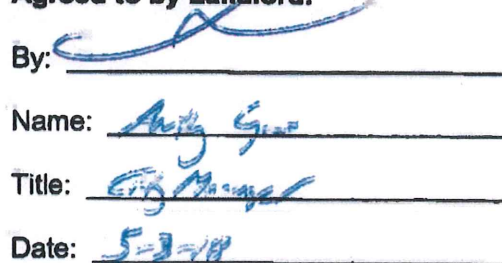 Agreed to by Landlord:
By:
Name: Andy
Title: City Manager
Date: 5-3-18